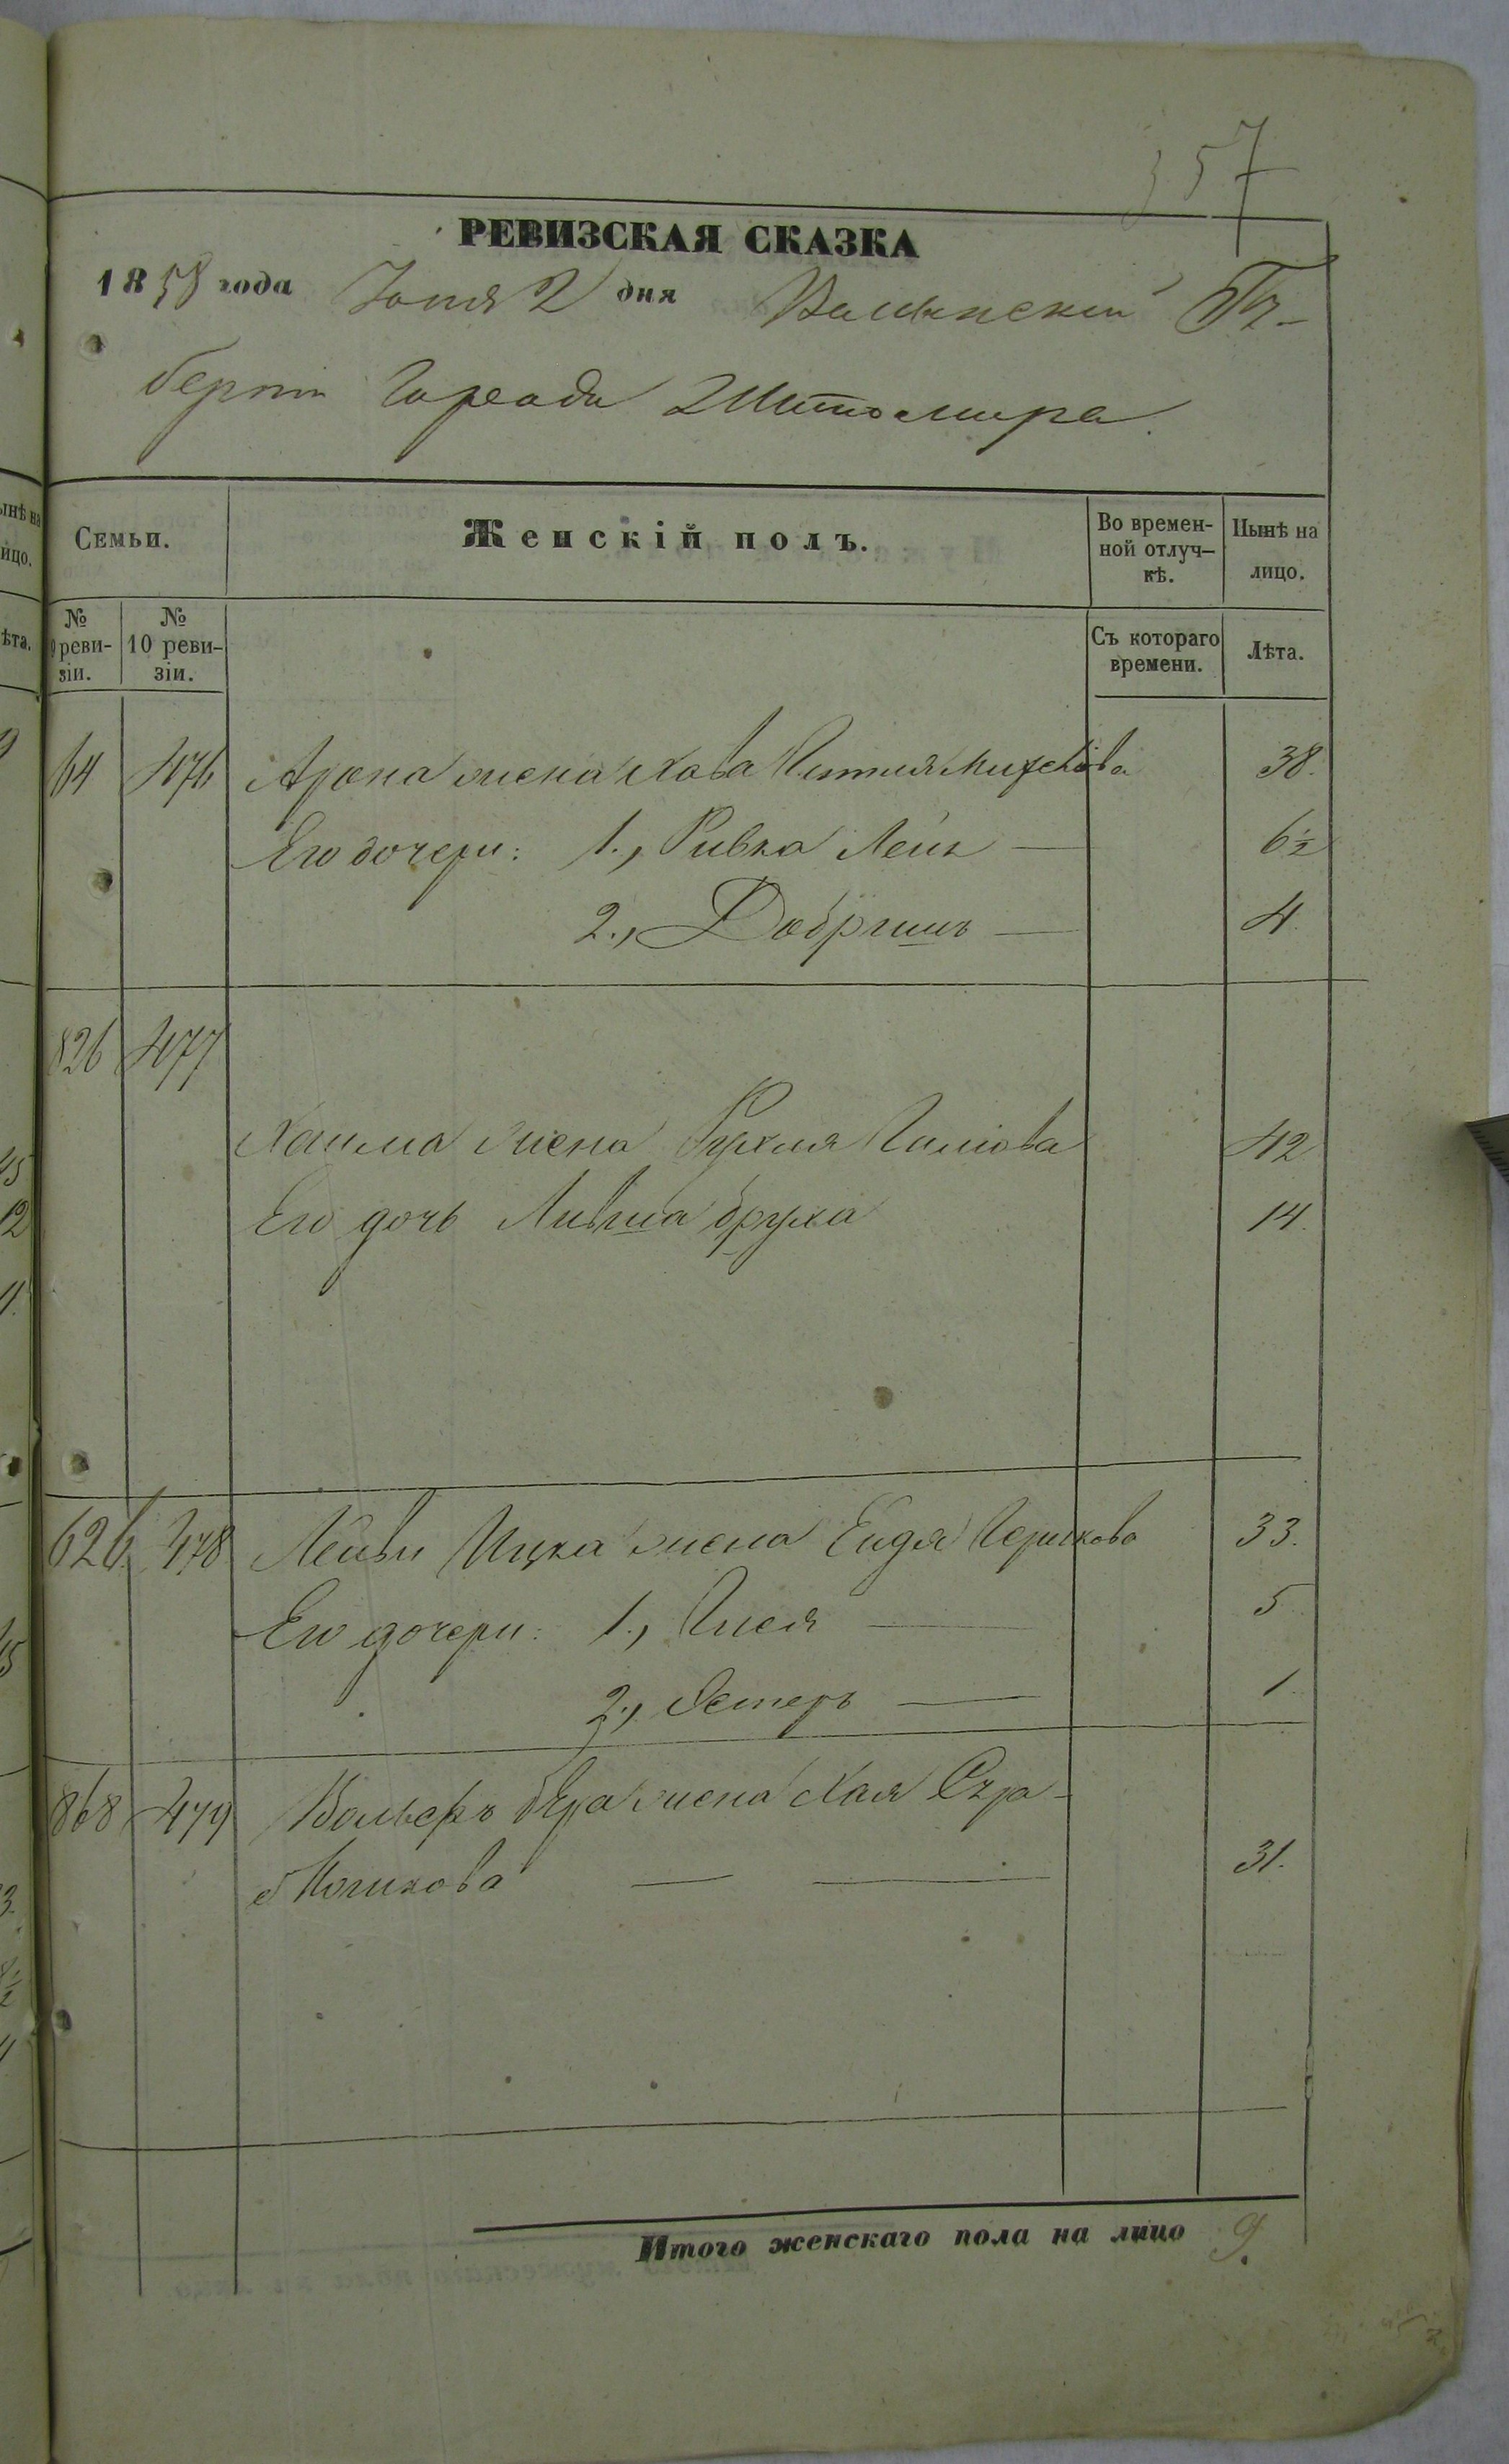 357
РЕВИЗСКАЯ СКАЗКА
1858 года Юня 2 дня Волынской Гу-
берніи Города Житомира.
Семьи.
Женскій полъ.
Во времен-
ной отлуч-
кѣ.
Нынѣ на
лицо.
№
9 реви-
зіи.
№
10 реви-
зіи.
Съ котораго
времени.
Лѣта.
64 476 Арона жена Хава Михелева 38.
Его дочери: 1., Ривка Лея — 6½
2., Добришъ — 4
826 477
Хаима жена Рухля 42
Его дочь Лившa бруха 14.
626 478 Лейви Ицка жена Ейдя Гершкова 33.
Его дочери: 1., Гися — 5
2., Эстеръ — 1
868 479 Вольфъ бера жена Хая Сура
Мошкова — — 31.
Итого женскаго пола на лицо 9.